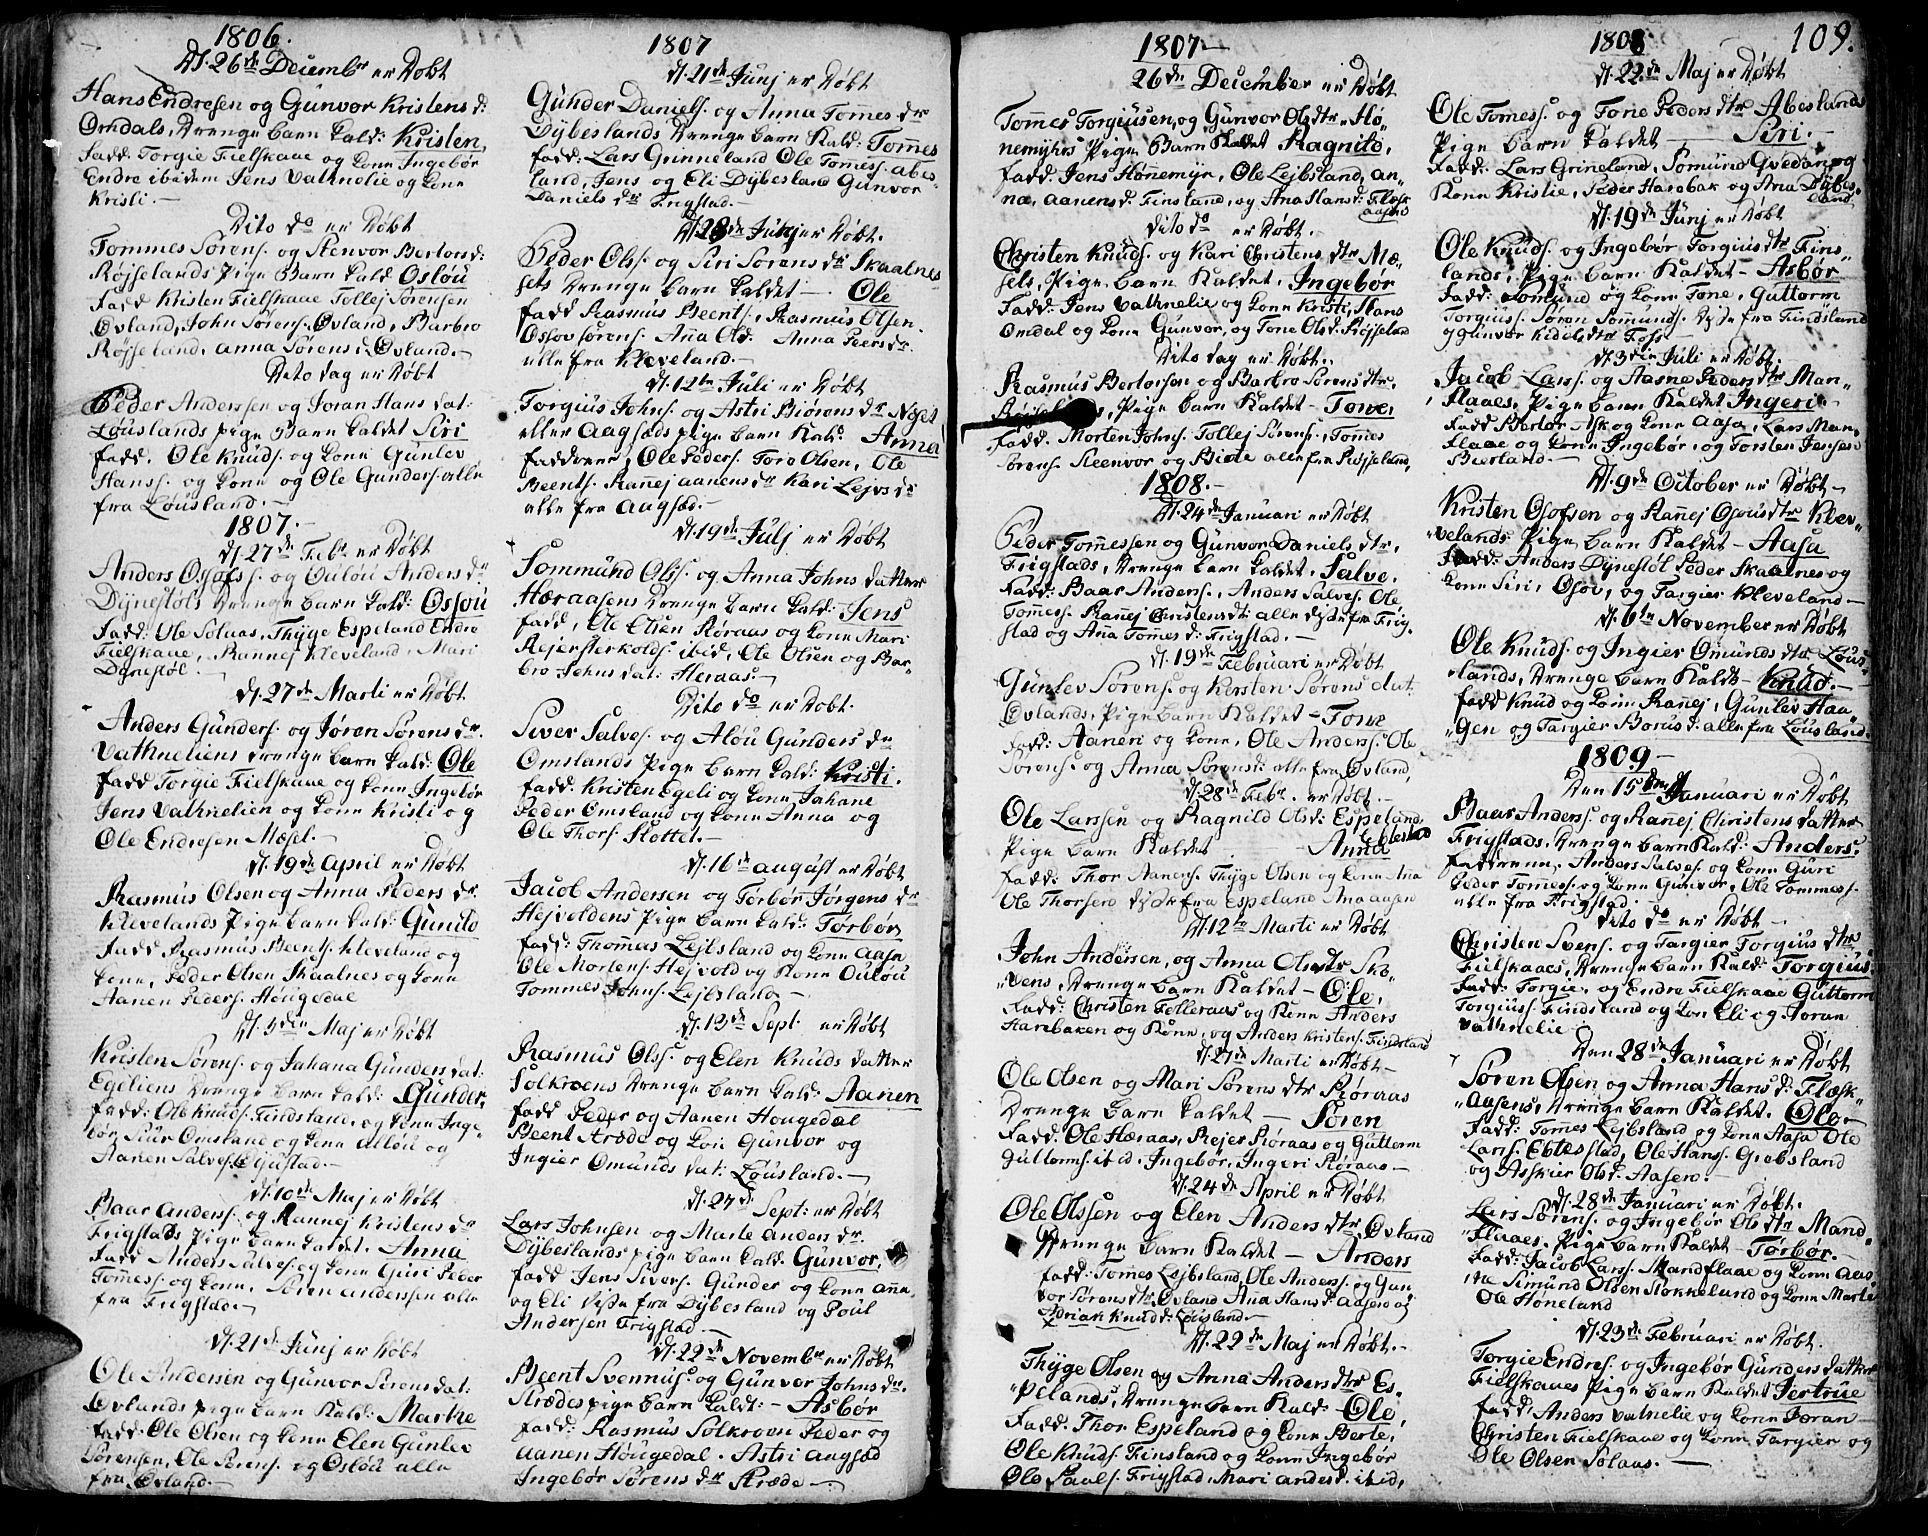 1806.
d. 26de Decembr er døbt
Hans Endresen og Gunvor Kristens d:
Omdals, Drenge barn kald: Kristen,
fadd: Torgie Fielskaae og Konn Ingebør
Endre ibidem Jens Vathnelie og Konn
Kristi. —
Dito do er Døbt
Tommes Sørens. og Stenvor Bertors d:
Røjselands Pige Barn kald Oslou
fadd Kristen Fielskaae Tollej Sørensen
Øvland, John Sørens. Øvland, Barbro
Røjseland, anna Sørens d. Øvland. —
Dito dag er Døbt
Peder Anderssen og Joran Hans dat:
Lousland's pige Barn kaldet Siri
fadd, Ole Knuds. og Konn Gunlev
Hanss. og Konn og Ole Gunders. alle
fra Lousland. —
1807. —
d. 27de Febr. er Døbt
Anders Ossofs s. og Oulou Anders dr
Dynestøls Drenge barn kald: Ossou
fadd: Ole Solaas, Thyge Espeland Endre
Fielskaae, Rannej Kleveland, Mari
Dynestøl. —
d. 27de Marti er Døbt
Anders Gunders. og Jøren Sørens dr.
Vathneliens drenge barn kald: Ole
fadd Torgie Fielskaae og Konn Ingebør
Jens Vathnelien og Konn Kristi og
Ole Endresen Mæsel. —
d. 19de April er Døbt
Rasmus Olsen og Anna Peders dr.
Klevelands Pige barn kald: Gunild
fadd Rasmus Beents. Kleveland og
Konn, Peder Olsen Skaalnes og Konn
Aanen Peders. Hougedal
d. 3den Maj er Døbt
Kristen Sørens. og Johana Gunders dat:
Egeliens Drenge barn kald: Gunder,
fadd: Ole Knuds. Findsland, og Konn Inge-
bør Siur Omsland og Konn Allou og
Aanen Salves.
d. 10de Maj er Døbt
Baar Anders. og Rannej Kristens dr
Frigstads Pige barn kaldet. Anna
fadd Anders Salves. og Konn Guri Peder
Tomess. og Konn, Søren Anderssen alle
fra Frigstad. —
d. 21de Junj er Døbt
Ole Andersen og Gunvor Sørens dat:
Øvlands pige barn kald: Marthe
fadd: Ole Olsen og Konn Elen Gunlev
Sørensen, Ole Sørens. og Oslou alle
fra Øvland. —
1807
d. 21de Junj er Døbt
Gunder Daniels. og Anna Tommes dr
Dybeslands Drenge barn kald: Tommes
fadd: Lars Gunneland Ole Tomess. abes-
land, Jens og Eli Dybesland Gunvor
Daniels dr Frigstad. —
d. 28de Junj er Døbt.
Peder Olss. og Siri Sørens dr Skaalnes
sets Drenge barn kaldet —. Ole
fadd Rasmus Beents. Rasmus Olsen
Ossov Sørens. Aña Olsd. Anna Peers dr.
alle fra Kleveland. —
d. 12te Juli er Døbt
Torgius Johns. og Astri Biørens dr Noset
eller Aagsæds pige barn kald: Anna
faddrene, Ole Peders. Tore Olsen, Ole
Beents. Rañej aanens dr Kari Lejvs dr
alle fra Aagsæd. —
d. 19de Julj er Døbt
Sommund Olss. og Anna Johns datter
Hæraasens Drenge barn kald: Jens
fadd, Ole Olsen Røraas og Konn Mari
Rejersterkolds ibid, Ole Olsen og Bar-
bro Johns dat: Heraas. —
Dito do er Døbt.
Siver Salves. og Alou Gunders dr
Omslands pige barn kald: Kristi.
fadd: Kristen Egeli og Konn Johane
Peder Omsland og Konn Anna og
Ole Thors. Slottet. —
d. 16de august er Døbt
Jacob Andersen og Torbør Jørgens dr
Hejvoldens Pige barn kald: Torbør
fadd: Thommas Lejbsland og Konn Aase
Ole Mortens. Hejvold og Konn Oulou
Tommes Johns. Lejbsland —
d. 13de Sept er Døbt
Rasmus Olss. og Elen Knuds datter
Solkroens Drenge barn kald: Aanen
fadd Peder og Aanen Hougedal
Beent Stræde og Kon Gunvor og
Ingier Omunds dat: Lousland. —
d. 27de Sept: er Døbt
Lars Johnsen og Marte Anders dr.
Dybeslands pige barn kald: Gunvor,
fadd Jens Sivers. Gunder og Konn Anna
og Eli disse fra Dybesland og Poul
Andersen Frigstad. —
d. 22de Novembr er Døbt
Beent Svennus. og Gunvor Johns dr.
Strædes pige barn kaldt: — Asbør
fadd: Rasmus Solkroen Peder og
Aanen Hougedal. Astri Augsæd
Ingebør Sørens dr Stræde —
1807 —
26de December er Døbt
Tommes Torgiusen, og Gunvor Ols dtr Hø„
nemyhrs Pige Barn kaldet Ragnild,
fadd, Jens Hønnemyr, Ole Lejbsland, an„
na, aanens d: Finsland, og Ana Hans d: Flæsk
aasene
dito do er Døbt.
Christen Knuds. og Kari Christens dtr Mæ„
sels, Pige barn Kaldet, Ingebør
Fadd: Jens Vathnelie og Konn Kristi, Hans
Omdal og Konn Gunvor, og Tone Ols d. Røjseland
Dito dag er Døbt.
Rasmus Bertorsen og Barbro Sørens dtr.
Pige barn kaldet — Tone,
fadd: Morten Johns. Tollej Sørens., Tomes
Sørens. Steenvor og Birte alle fra Røjseland,
1808. —
d. 24de Januari er Døbt
Peder Tommessen og Gunvor Daniels dtr,
Frigstads, Drenge barn kaldet, Salve,
fadd: Baar Anders., Anders Salves. Ole
Tommess. Rañej Christens dt: alle disse fra Frig„
stad og Aña Tommes d: Frigstad. —
d. 19de Februari er Døbt
Gunlev Sørens. og Kersten Sørens dat:
Øvlands, Pige barn kaldet — Tone
fadd: Aanen og Konn, Ole Anders. Ole
Sørens. og Anna Sørens d: alle fra Øvland,
d. 28de Febr. er Døbt. —
Ole Larssen og Ragnild Ols d: Espeland,
Pige barn Kaldet — Anna Eblestad
fadd: Thor Aanens. Thyge Olsen og Konn Ana
Ole Thorsen disse fra Espeland Ana aasen
d. 12te Marti er Døbt
John Andersen, og Anna Ols dtr Sko„
„vens, Drenge barn kaldet — Ole,
fadd: Christen Telleraas og Konn Anders
Harebaken og Konn, og Anders Kristens. Findsland
d. 27de Marti er Døbt —
Ole Olsen og Mari Sørens dtr Røraas
Drenge barn kaldet — Søren
fadd: Ole Hæraas, Rejer Røraas og Guttorm
Guttorms. ibid, Ingebør, Ingeri Røraas —
d. 24de April er Døbt
Ole Olssen og Elen Anders dtr, Øvland
Drenge barn kaldet — Anders
fadd: Tomes Lejbsland, Ole Anders. og Gun
vor Sørens dtr. Øvland Aña Hans d: Aasen og
Knud d: Lousland —
d. 22de Maj er Døbt. —
Thyge Olsen og Anna Anders dtr Es„
„pelands, Drenge barn kald: Ole,
fadd: Thor Espeland og Konn Berte,
Ole Knuds. Finsland og Konn Ingebør
Ole Paals. Frigstad, Mari Anders d. ibid,
1808 109.
d. 22de Maj er Døbt
Ole Tomess. og Tone Peders dtr Abeslands
Pige barn kaldet — Siri. —
fadd: Lars Grineland, Somund Qvedan og
Konn Kristie, Peder Harebak og Ana Dybes,
eland
d. 19de Junj er Døbt
Ole Knuds. og Ingebør Torgius dtr Fins„
lands, Pige barn kaldet — Asbør
fadd: Somund og Konn Tone, Guttorm
Torgius. Søren Sommunds. disse fra Findsland
og Gunvor Kidils dtr Foss —
d. 3die Juli er Døbt.
Jacob Larss. og Aasne Peders dtr Man„
„flaaes, Pige barn kaldet Ingeri —
fadd Bertor Ask og Konn Aasa, Lars Man„
flaae og Konn Ingebør, og Torsten Jensen
Bierland. —
d. 9de October er Døbt —
Kristen Osofsen og Rañej Osous dtr Klev„
„velands Pige barn kaldet — Aasa
fadd: Anders Dynestøl Peder Skaalnes og
Konn Siri, Osov, og Targier Kleveland —
d. 6te November er Døbt
Ole Knuds. og Ingier Omunds dtr Lous„
„lands, Drenge barn kaldt — Knud. —
fadd Knud og Konn Rañej, Gunlev Haa„
„gen og Targier Borus d: alle fra Lousland. —
1809 —
Den 15den Januari er Døbt
Baar Anders. og Rañej Christens datter
Frigstads, Drenge barn kald: Anders.
faddrene, Anders Salves. og Konn Guri
Peder Tommess. og Konn Gunvor, Ole Tommess.
alle fra Frigstad. —
dito do er Døbt —
Christen Svens. og Targier Torgius dtr
Fielskaaes, Drenge barn kald: Torgius
fadd: Torgie, og Endre Fielskaae Guttorm
Torgiuss. Findsland og Kon Eli og Joran
Vathnelie
Den 28de Januari er Døbt
Søren Olsen og Anna Hans d: Flæsk„
„Aasens, Drenge barn kaldet. Ole —
fadd: Tomes Lejbsland og Konn Aasa Ole
Larss. Eblesstad, Ole Hanss. Grobsland
og Asskier Ols d. Aasen. —
d. 28de Januari er Døbt.
Lars Sørens. og Ingebør Ols dtr Mand„
„flaaes, Pige barn kaldet — Torbør. —
fadd: Jacob Larss. Mandflaae og Konn Aas
ne Simund Olsen Stokkeland og Konn Marte
Ole Honeland
d. 23de Februari er Døbt.
Torgie Endres. og Ingebør Gunders datter
Fielskaaes Pige barn kaldet Jertrue
fadd: Anders Vatnelie og Konn Jøran —
Christen Fielskaae og Konn Targier og
Ole Olsen Solaas. —